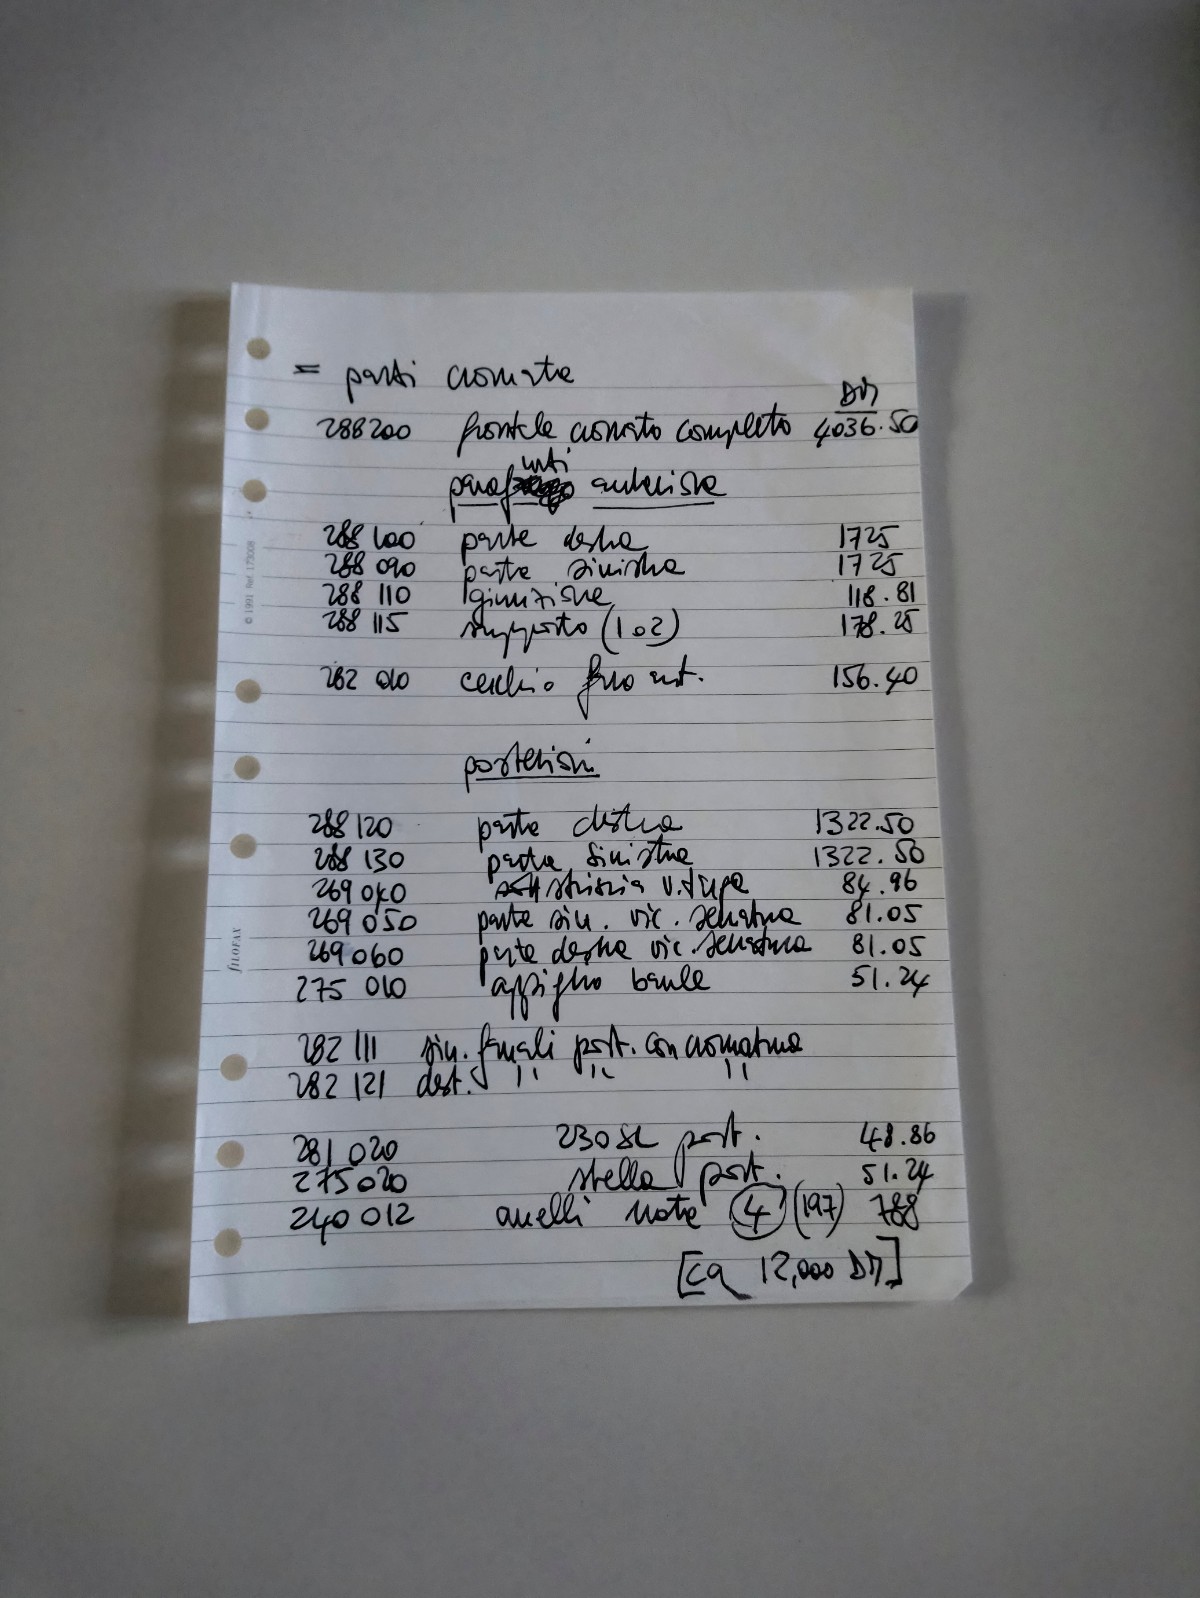 = parti cromate
DM
288200 frontale cromato completo 4036.50
urti
paraf anteriore
288 100 parte destra 1725
288 090 parte sinistra 1725
288 110 giunzione 118.81
288 115 supporto (1 o 2) 178.25
282 010 cerchio faro ant. 156.40
posteriori
288 120 parte destra 1322.50
288 130 parte sinistra 1322.50
269 040 striscia v. targa 84.96
269 050 parte sin. vic. serratura 81.05
269 060 parte destra vic. serratura 81.05
275 010 appiglio baule 51.24
282 111 sin. fanali post. con cromatura
282 121 dest. " " "
281 020 230SL post. 48.86
275 020 stella post. 51.24
240 012 anelli ruote 4 (197) 788
[ca 12,000 DM]
© 1991 Ref. 173008
FILOFAX